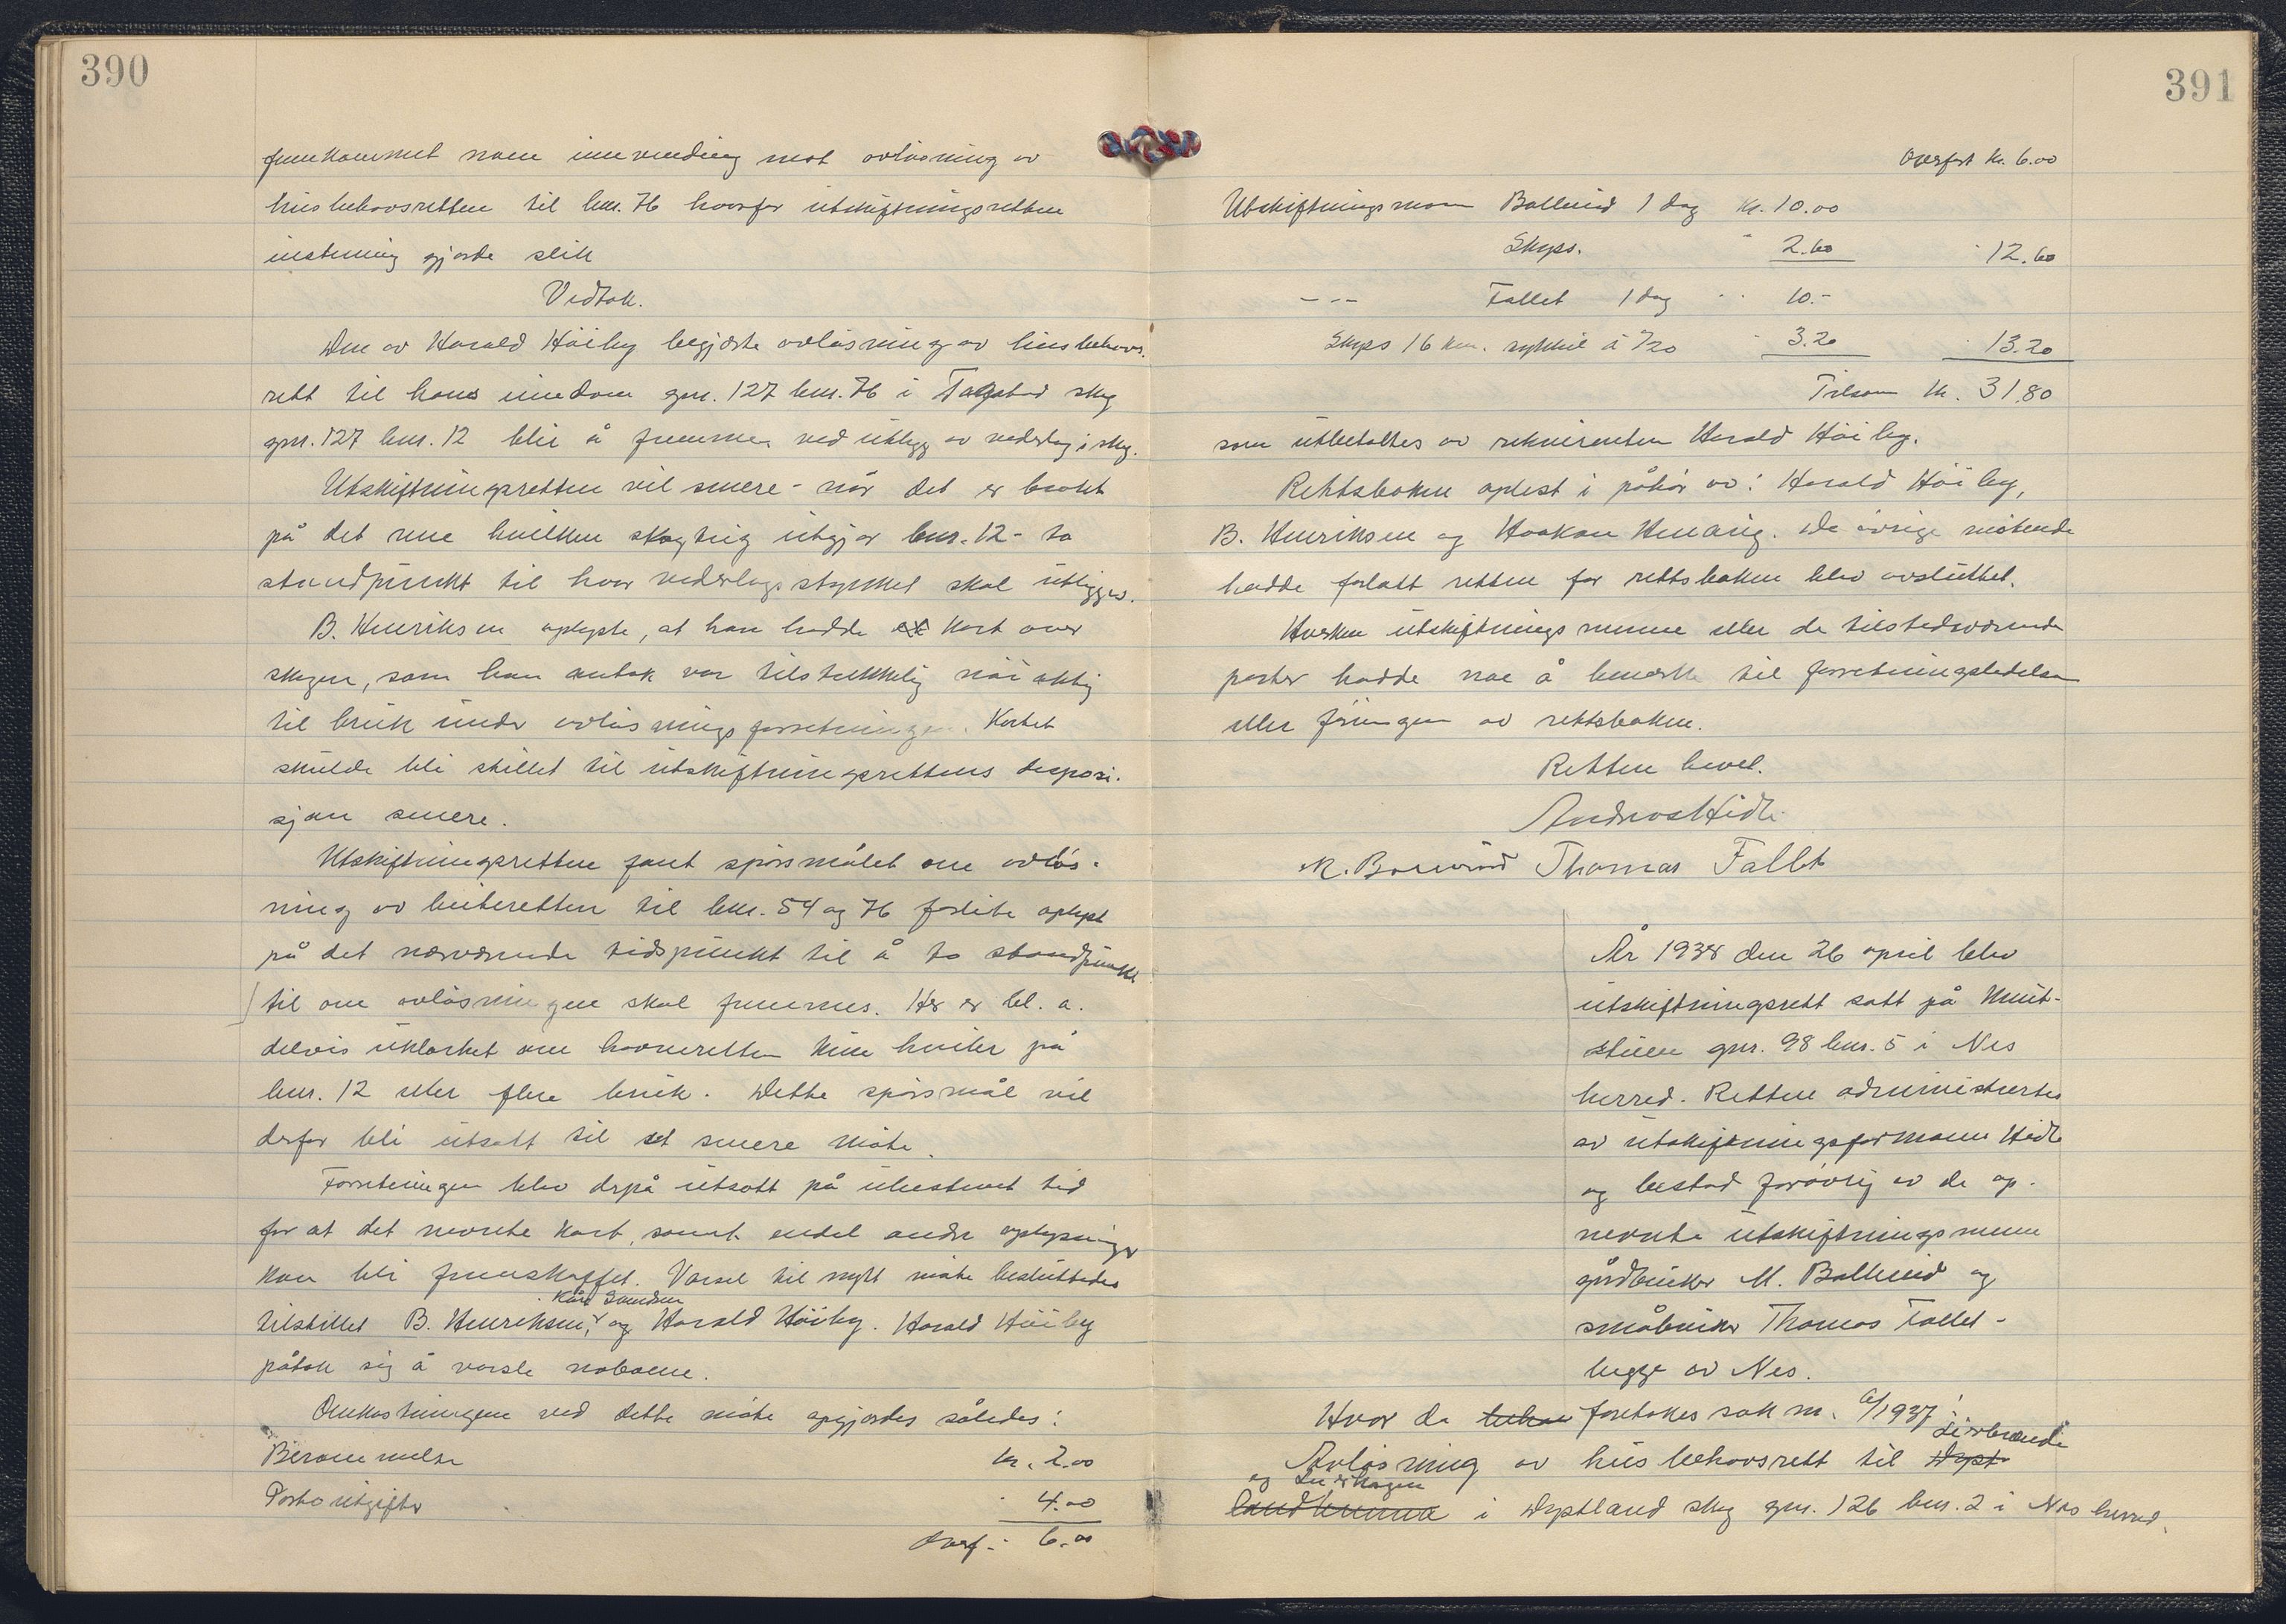 390
fremkommet noen innvending mot avløsning av
husbehovsretten til bnr. 76 hvorfor utskiftningsretten
instemmig gjorde slik
Vedtak.
Den av Harald Höiby begjærte avløsning av husbehovs-
rett til hans eiendom gnr. 127 bnr. 76 i skog
gnr. 127 bnr. 12 blir å fremme ved utlegg av vederlag i skog.
Utskiftningsretten vil senere - når det er brakt
på det rene hvilken skogteig utgjør bnr. 12 - ta
standpunkt til hvor vederlagsstykket skal utlegges.
B. Henriksen oplyste, at han hadde et kart over
skogen, som han antok var tilstrekkelig nöiaktig
til bruk under avløsningsforretningen. Kartet
skulde bli stillet til utskiftningsrettens disposi-
sjon senere.
Utskiftningsretten fant spörsmålet om avlös-
ning av beiteretten til bnr. 54 og 76 forlite oplyst
på det nærværende tidspunkt til å ta standpunkt
til om avlösningen skal fremmes. Her er bl. a.
delvis uklarhet om havneretten kun hviler på
bnr. 12 eller flere bruk. Dette spörsmål vil
derfor bli utsatt til et senere möte.
Forretningen blev derpå utsatt på ubestemt tid
for at det nevnte kart, samt endel andre oplysninger
kan bli fremskaffet. Varsel til nytt möte besluttedes
Kåre
tilstillet B. Henriksen, og Harald Höiby. Harald Höiby
påtok sig å varsle naboene.
Omkostningene ved dette möte opgjordes således:
Berammelse kr. 2.00
Portoutgifter " 4.00
Overf. " 6.00
391
Overfört kr. 6.00
Utskiftningsmann Ballerud 1 dag kr. 10.00
Skyss. " 2.60 " 12.60
- " - Fallet 1 dag " 10.-
Skyss 16 km. sykkel à /20 " 3.20 " 13.20
Tilsam kr. 31.80
som utbetaltes av rekvirenten Harald Höiby.
Rettsboken oplest i påhör av: Harald Höiby,
B. Henriksen og Haakon Henanig. De övrige mötende
hadde forlatt retten för rettsboken blev avsluttet.
Hverken utskiftningsmenne eller de tilstedeværende
parter hadde noe å bemerke til forretningsledelsen
eller föringen av rettsboken.
Retten hevet.
Andreas Hidle
M. Ballerud Thomas Fallet
År 1938 den 26 april blev
utskiftningsrett satt på Knut-
stuen gnr. 98 bnr. 5 i Nes
herred. Retten administrertes
av utskiftningsformann Hidle
og bestod forövrig av de op-
nevnte utskiftningsmenn
gårdbruker M. Ballerud og
småbruker Thomas Fallet -
begge av Nes.
Hvor da foretokes sak nr. 6/1937:
Avlösning av husbehovsrett til Dypt- Lisbrende
og Lundhagen
i Dyptland skog gnr. 126 bnr. 2 i Nes herred.